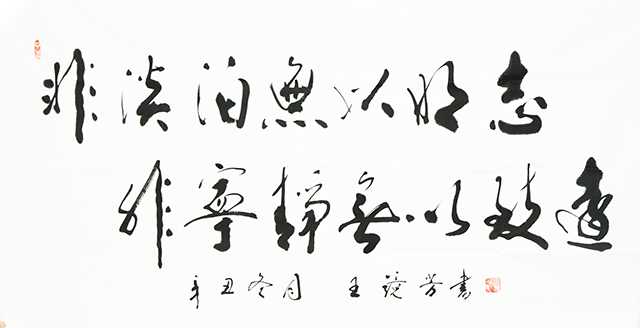 非淡泊無以明志
非寧靜無以致遠
辛丑冬月 王鏡芳書